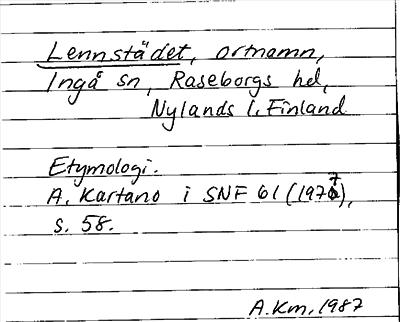 Lennstädet, ortnamn,
Ingå sn, Raseborgs hd,
Nylands l. Finland
Etymologi.
A. Kartano i SNF 61 (1977),
s. 58.
A.Km. 1987